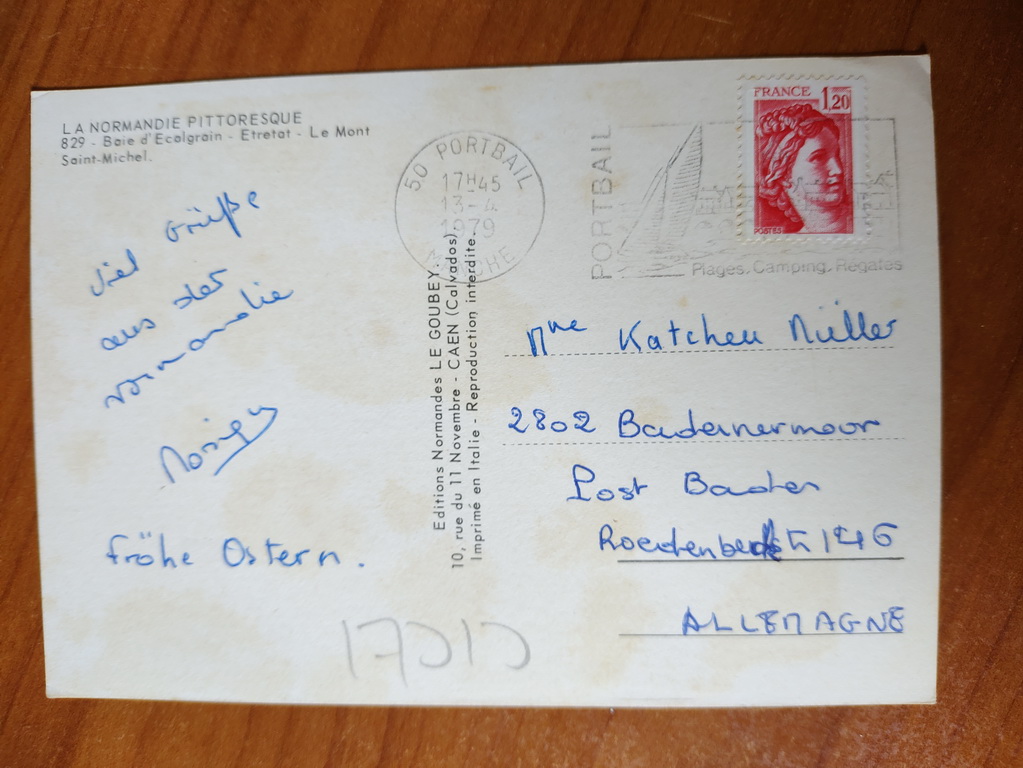 LA NORMANDIE PITTORESQUE
829 - Baie d'Ecalgrain - Etretat - Le Mont
Saint-Michel.
Viel Grüße
aus der
Normandie
fröhe Ostern.
Editions Normandes LE GOUBEY.
10, rue du 11 Novembre - CAEN (Calvados)
Imprimé en Italie - Reproduction interdite.
50 PORTBAIL
17H45
13-4
1979
MANCHE
PORTBAIL
Plages. Camping. Régates
FRANCE 1,20
POSTES
Mme Katchen Müller
2802 Badenermoor
Post Baden
ALLEMAGNE